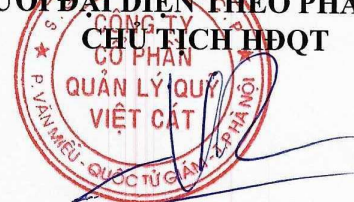 ƯỜI ĐẠI DIỆN THEO PHÁ
CHỦ TỊCH HĐQT
CÔNG TY
CỔ PHẦN
QUẢN LÝ QUỸ
VIỆT CÁT
P. VĂN MIẾU - QUỐC TỬ GIÁM - T.P HÀ NỘI